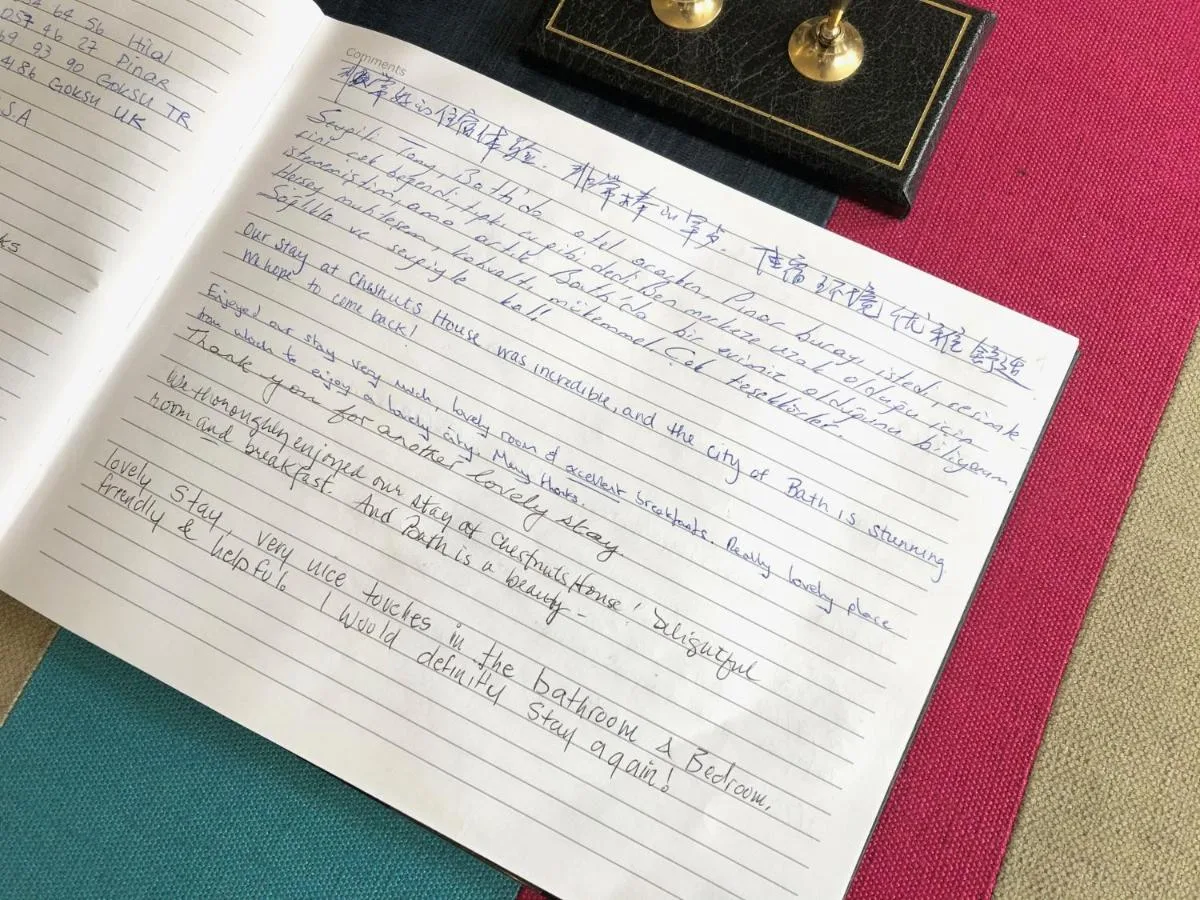 64 56 Hilal
057 46 27 Pinar
69 93 90 GOKSU TR
4186 GOKSU UK
S.A
ks
Comments
非常好的住宿体验. 非常棒的早点. 住宿环境优雅舒适
Sevgili Tony, Bath'da otel ararken, Pınar burayı istedi, resimle
rini çok beğendi, tıpkı ev gibi dedi. Ben merkeze uzak olduğu için
istememiştim, ama artık Bath'da bir evimiz olduğunu biliyorum.
Herşey muhteşem, kahvaltı mükemmel. Çok teşekkürler.
Sağlıkla ve sevgiyle kal!
Our stay at Chesnuts House was incredible, and the city of Bath is stunning
We hope to come back!
Enjoyed our stay very much, lovely room & excellent breakfasts. Really lovely place
from which to enjoy a lovely city. Many thanks.
Thank you for another lovely stay
We thoroughly enjoyed our stay at Chestnuts House! Delightful
room and breakfast. And Bath is a beauty-
lovely stay, very nice touches in the bathroom & Bedroom,
friendly & helpful. I would definity stay again!